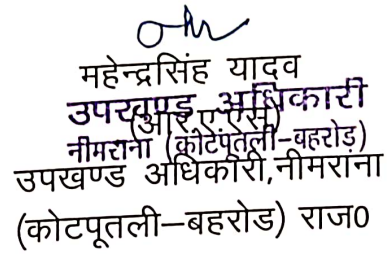 महेन्द्रसिंह यादव
उपखण्ड अधिकारी
(आर.ए.एस)
नीमराना (कोटपूतली-बहरोड़)
उपखण्ड अधिकारी,नीमराना
(कोटपूतली–बहरोड) राज0